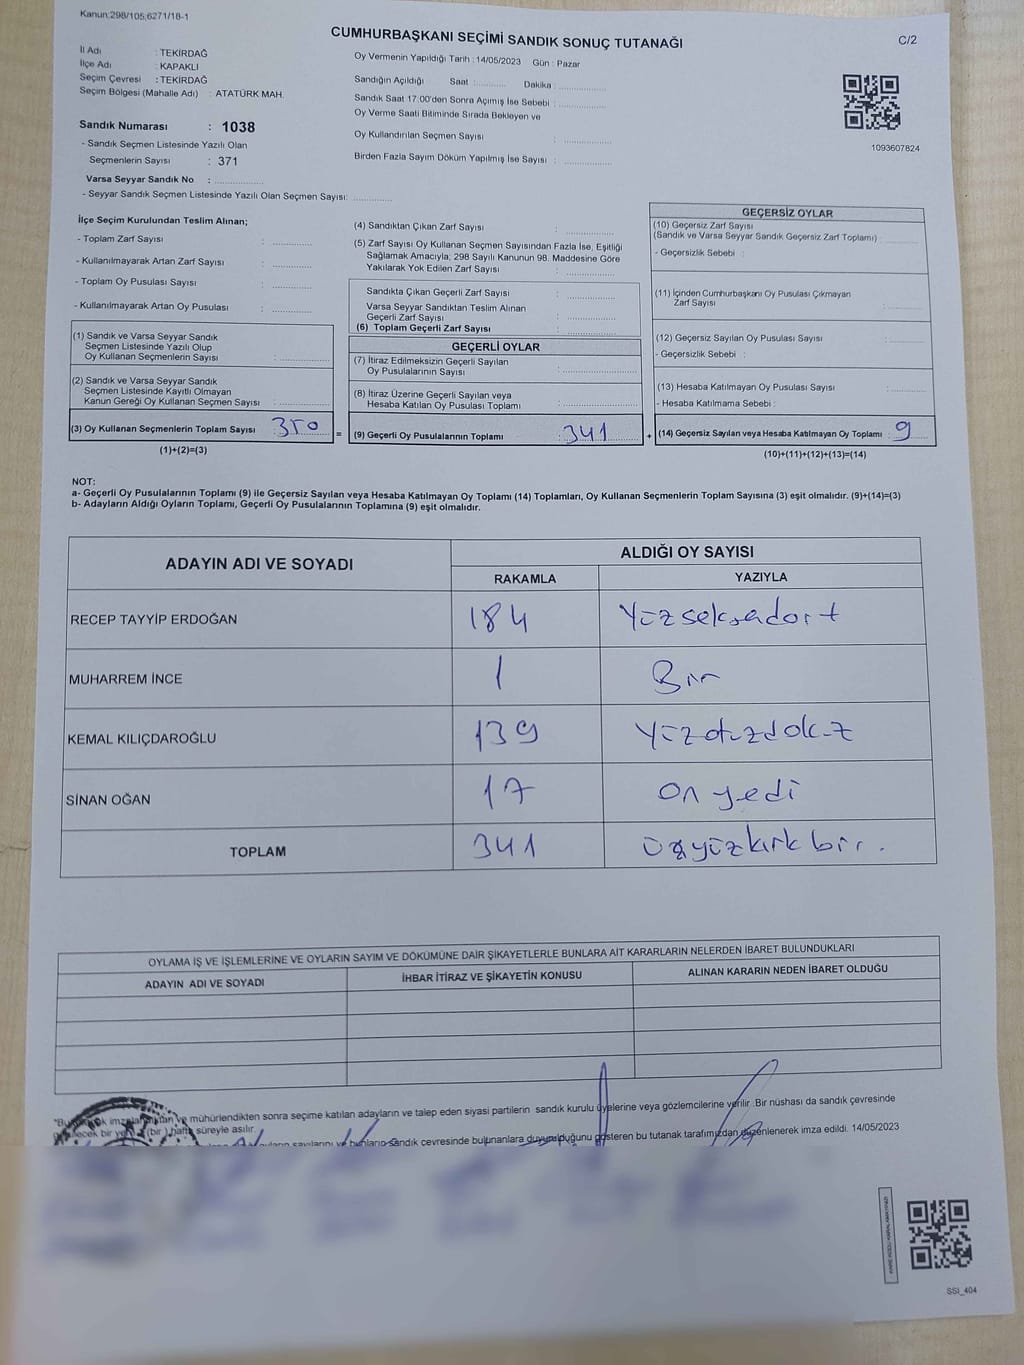 Kanun:298/105;6271/18-1
CUMHURBAŞKANI SEÇİMİ SANDIK SONUÇ TUTANAĞI
C/2
İl Adı : TEKİRDAĞ
İlçe Adı : KAPAKLI
Seçim Çevresi : TEKİRDAĞ
Seçim Bölgesi (Mahalle Adı) : ATATÜRK MAH.
Sandık Numarası : 1038
- Sandık Seçmen Listesinde Yazılı Olan
Seçmenlerin Sayısı : 371
Varsa Seyyar Sandık No :
- Seyyar Sandık Seçmen Listesinde Yazılı Olan Seçmen Sayısı:
Oy Vermenin Yapıldığı Tarih : 14/05/2023 Gün : Pazar
Sandığın Açıldığı Saat : Dakika :
Sandık Saat 17:00'den Sonra Açımış İse Sebebi :
Oy Verme Saati Bitiminde Sırada Bekleyen ve
Oy Kullandırılan Seçmen Sayısı :
Birden Fazla Sayım Döküm Yapılmış İse Sayısı :
1093607824
İlçe Seçim Kurulundan Teslim Alınan;
- Toplam Zarf Sayısı :
- Kullanılmayarak Artan Zarf Sayısı :
- Toplam Oy Pusulası Sayısı :
- Kullanılmayarak Artan Oy Pusulası :
(1) Sandık ve Varsa Seyyar Sandık
Seçmen Listesinde Yazılı Olup
Oy Kullanan Seçmenlerin Sayısı :
(2) Sandık ve Varsa Seyyar Sandık
Seçmen Listesinde Kayıtlı Olmayan
Kanun Gereği Oy Kullanan Seçmen Sayısı :
(3) Oy Kullanan Seçmenlerin Toplam Sayısı : 350
(1)+(2)=(3)
=
(4) Sandıktan Çıkan Zarf Sayısı :
(5) Zarf Sayısı Oy Kullanan Seçmen Sayısından Fazla İse, Eşitliği
Sağlamak Amacıyla; 298 Sayılı Kanunun 98. Maddesine Göre
Yakılarak Yok Edilen Zarf Sayısı :
Sandıkta Çıkan Geçerli Zarf Sayısı :
Varsa Seyyar Sandıktan Teslim Alınan
Geçerli Zarf Sayısı :
(6) Toplam Geçerli Zarf Sayısı :
GEÇERLİ OYLAR
(7) İtiraz Edilmeksizin Geçerli Sayılan
Oy Pusulalarının Sayısı :
(8) İtiraz Üzerine Geçerli Sayılan veya
Hesaba Katılan Oy Pusulası Toplamı :
(9) Geçerli Oy Pusulalarının Toplamı : 341
+
GEÇERSİZ OYLAR
(10) Geçersiz Zarf Sayısı
(Sandık ve Varsa Seyyar Sandık Geçersiz Zarf Toplamı) :
- Geçersizlik Sebebi :
(11) İçinden Cumhurbaşkanı Oy Pusulası Çıkmayan
Zarf Sayısı :
(12) Geçersiz Sayılan Oy Pusulası Sayısı :
- Geçersizlik Sebebi :
(13) Hesaba Katılmayan Oy Pusulası Sayısı :
- Hesaba Katılmama Sebebi :
(14) Geçersiz Sayılan veya Hesaba Katılmayan Oy Toplamı : 9
(10)+(11)+(12)+(13)=(14)
NOT:
a- Geçerli Oy Pusulalarının Toplamı (9) ile Geçersiz Sayılan veya Hesaba Katılmayan Oy Toplamı (14) Toplamları, Oy Kullanan Seçmenlerin Toplam Sayısına (3) eşit olmalıdır. (9)+(14)=(3)
b- Adayların Aldığı Oyların Toplamı, Geçerli Oy Pusulalarının Toplamına (9) eşit olmalıdır.
ADAYIN ADI VE SOYADI ALDIĞI OY SAYISI
RAKAMLA YAZIYLA
RECEP TAYYİP ERDOĞAN 184 Yüzseksadört
MUHARREM İNCE 1 Bir
KEMAL KILIÇDAROĞLU 139 Yüzotuzdokuz
SİNAN OĞAN 17 On yedi
TOPLAM 341 üçyüzkırk bir.
OYLAMA İŞ VE İŞLEMLERİNE VE OYLARIN SAYIM VE DÖKÜMÜNE DAİR ŞİKAYETLERLE BUNLARA AİT KARARLARIN NELERDEN İBARET BULUNDUKLARI
ADAYIN ADI VE SOYADI İHBAR İTİRAZ VE ŞİKAYETİN KONUSU ALINAN KARARIN NEDEN İBARET OLDUĞU
ve mühürlendikten sonra seçime katılan adayların ve talep eden siyasi partilerin sandık kurulu üyelerine veya gözlemcilerine verilir. Bir nüshası da sandık çevresinde
bir yere (bir) hafta süreyle asılır.
sayılarını ve bunların sandık çevresinde bulunanlara duyurulduğunu gösteren bu tutanak tarafımızdan düzenlenerek imza edildi. 14/05/2023
SSI_404